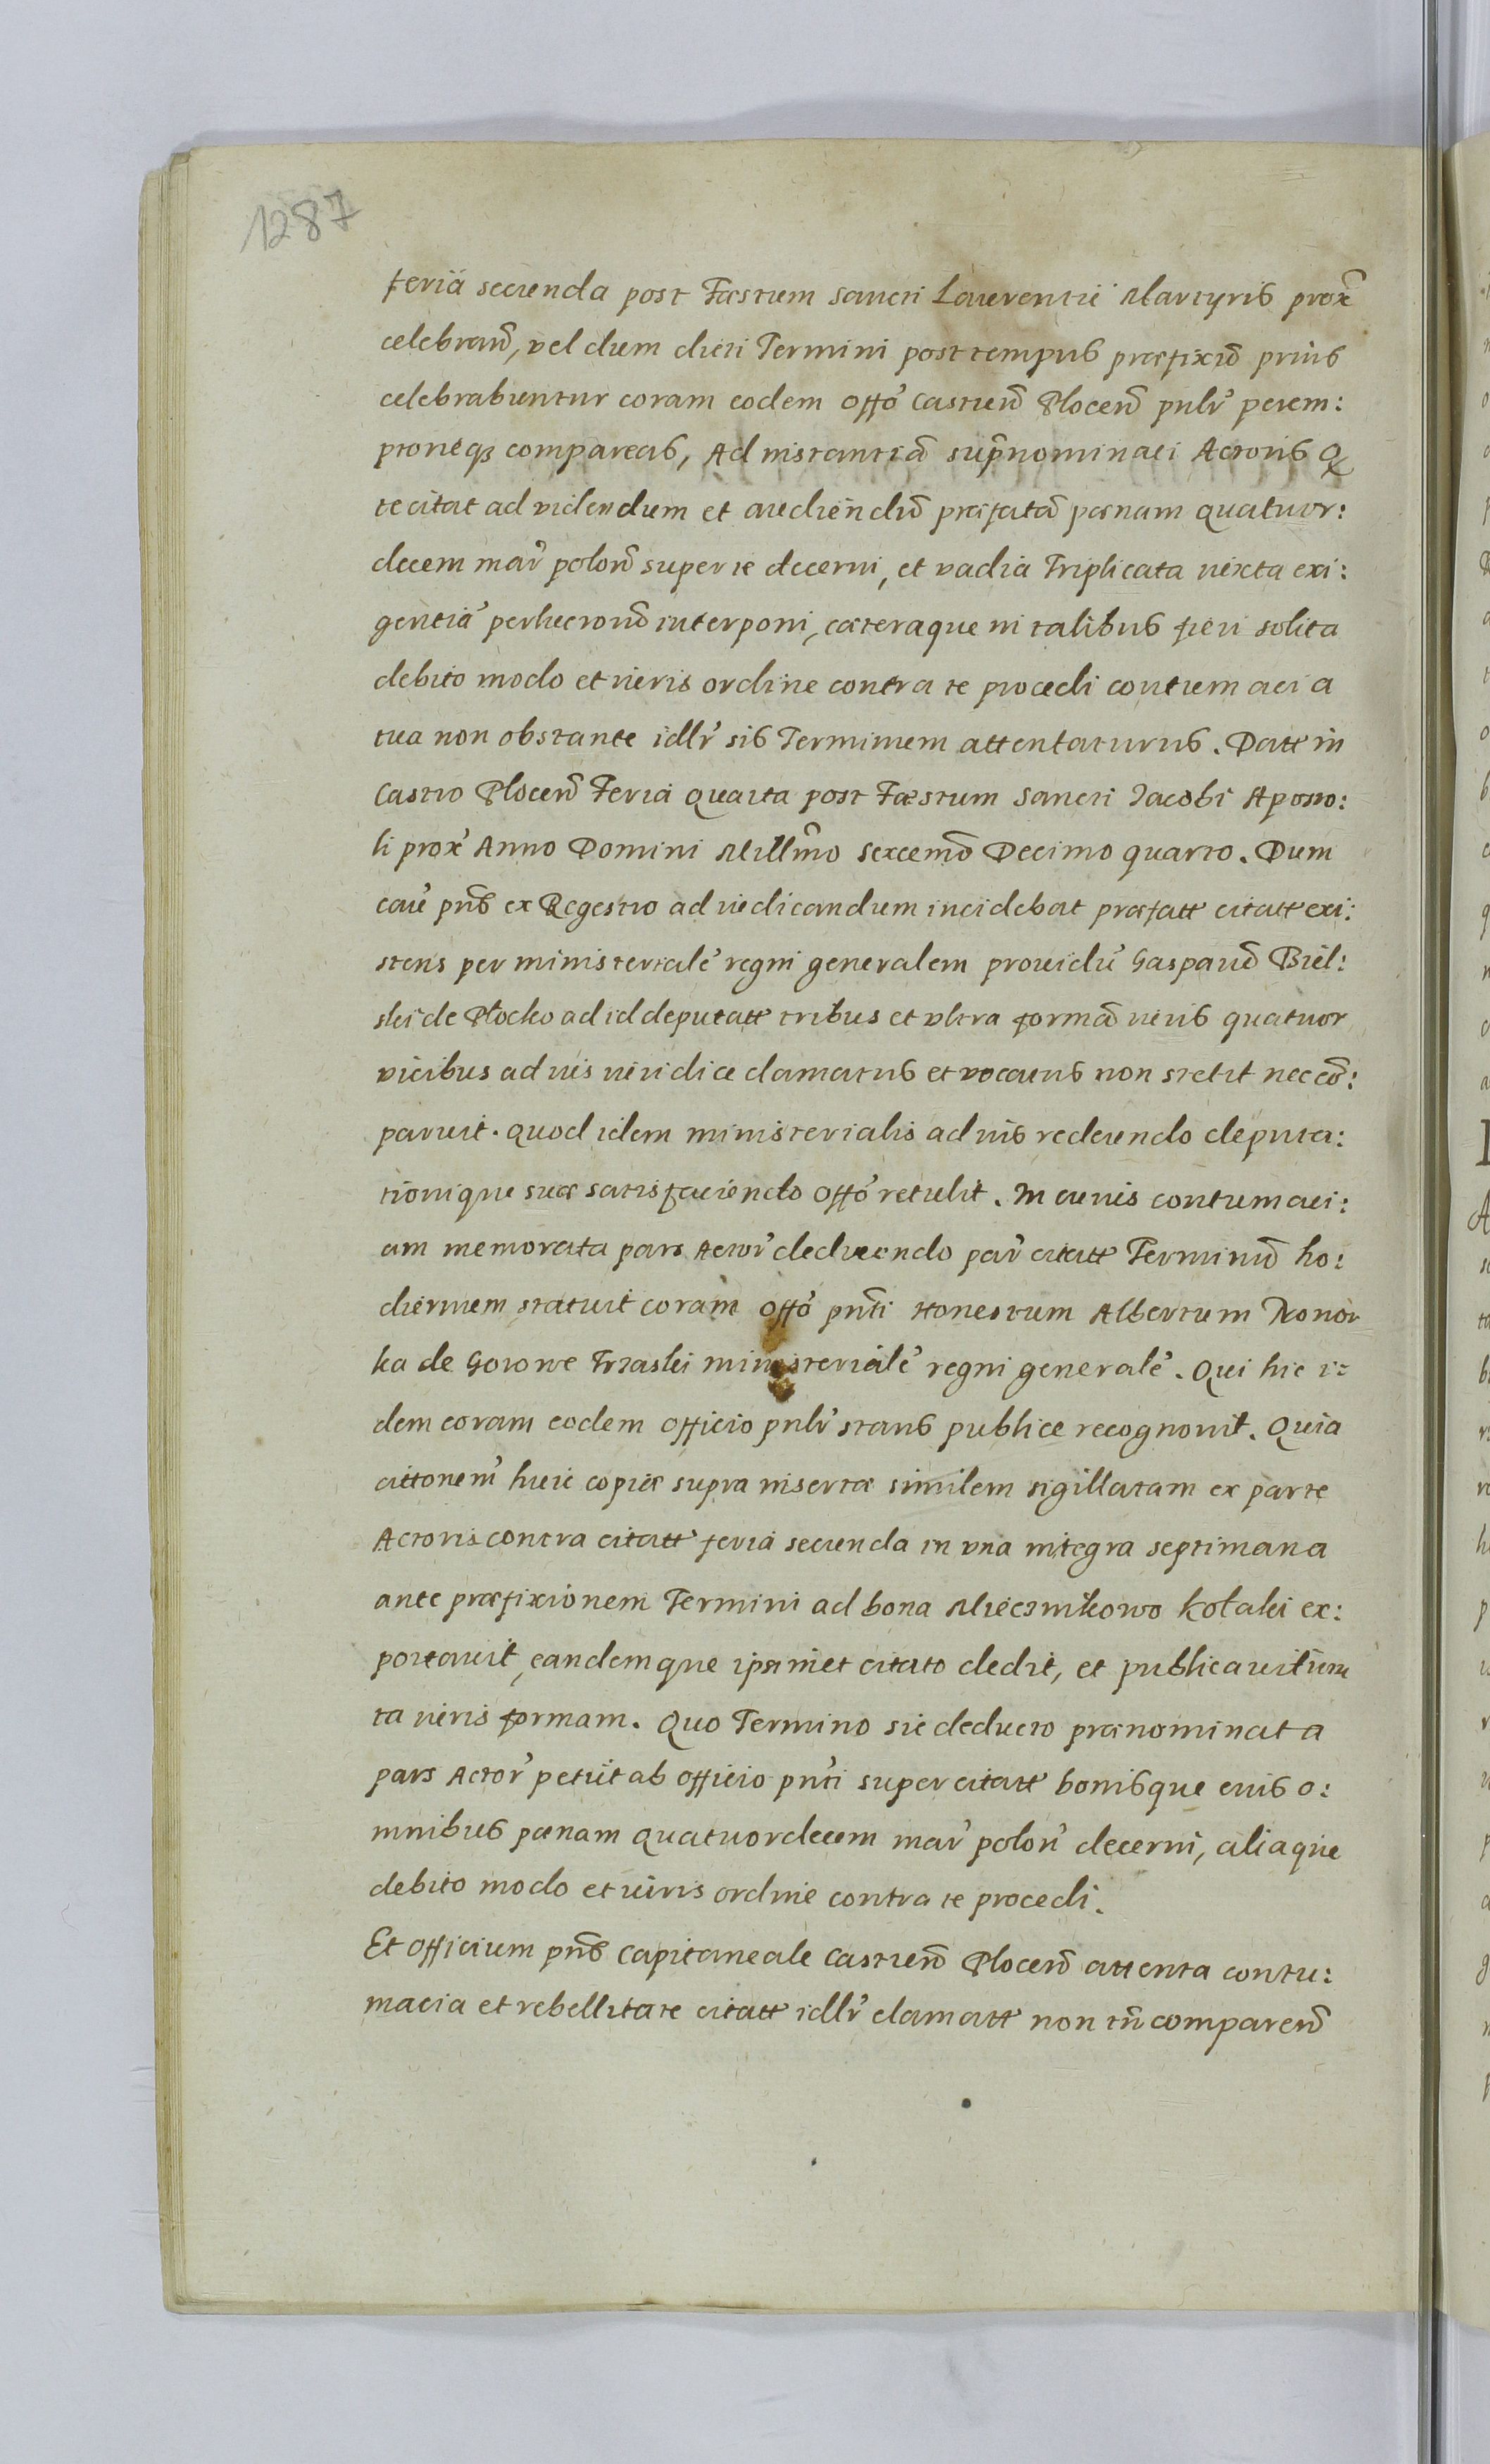 1287
feria secunda post Fæstum Sancti Laurentii Martyris prox̃
celebrañ, vel dum dicti Termini post tempus præfixũ prius
celebrabuntur coram eodem offõ Castreñ Plocen̄ pnlr̃ perem:
ptorieqȝ compareas, Ad instantiã supr̃nominati Actoris Q
te citat ad videndum et audiendũ præfatã pœnam quatuor:
decem mar̃ polon̄ super te decerni, et vadia Triplicata iuxta exi:
gentiã perlucrorũ interponi, cæteraque in talibus fieri solita
debito modo et iuris ordine contra te procedi contumacia
tua non obstante idlr̃ sis Terminum attentaturus. Datt in
Castro Plocen̄ Feria quarta post Fæstum Sancti Jacobi Aposto:
li prox̃ Anno Domini Millm̃o Sexcemõ Decimo quarto. Dum
caũ pn̄s ex Regestro ad iudicandum incidebat præfatt citatt exi:
stens per ministerialẽ regni generalem prouidũ Gasparũ Biel:
ski de Płocko ad id deputatt tribus et vltra formã iuris quatuor
vicibus ad ius iuridice clamatus et vocatus non stetit nec cõ:
paruit. quod idem ministerialis ad ius reddendo deputa:
tionique suæ satisfaciendo offõ retulit. In cuius contumaci:
am memorata pars Actor̃ deducendo par̃ citatt Terminũ ho:
diernum statuit coram offõ pn̄ti Honestum Albertum Nonor
ka de Gorowe Trzaski ministerialẽ regni generalẽ. Qui hic i:
dem coram eodem officio pnlr̃ stans publice recognouit. Quia
cittonem̃ huic copiæ supra insertæ similem sigillatam ex parte
Actoris contra citatt feria secunda in vna integra septimana
ante præfixionem Termini ad bona Miecznikowo Kołaki ex:
portauit, eandemque ipsimet citato dedit, et publicauit iux
ta iuris formam. Quo Termino sic deducto prænominata
pars Actor̃ petiit ab officio pn̄ti super citatt bonisque euis o:
mnibus pœnam quatuordecem mar̃ polon̄ decerni, aliaque
debito modo et iuris ordine contra te procedi.
Et officium pn̄s Capitaneale Castren̄ Plocen̄ attenta contu:
macia et rebellitate citatt idlr̃ clamatt non tn̄ comparen̄